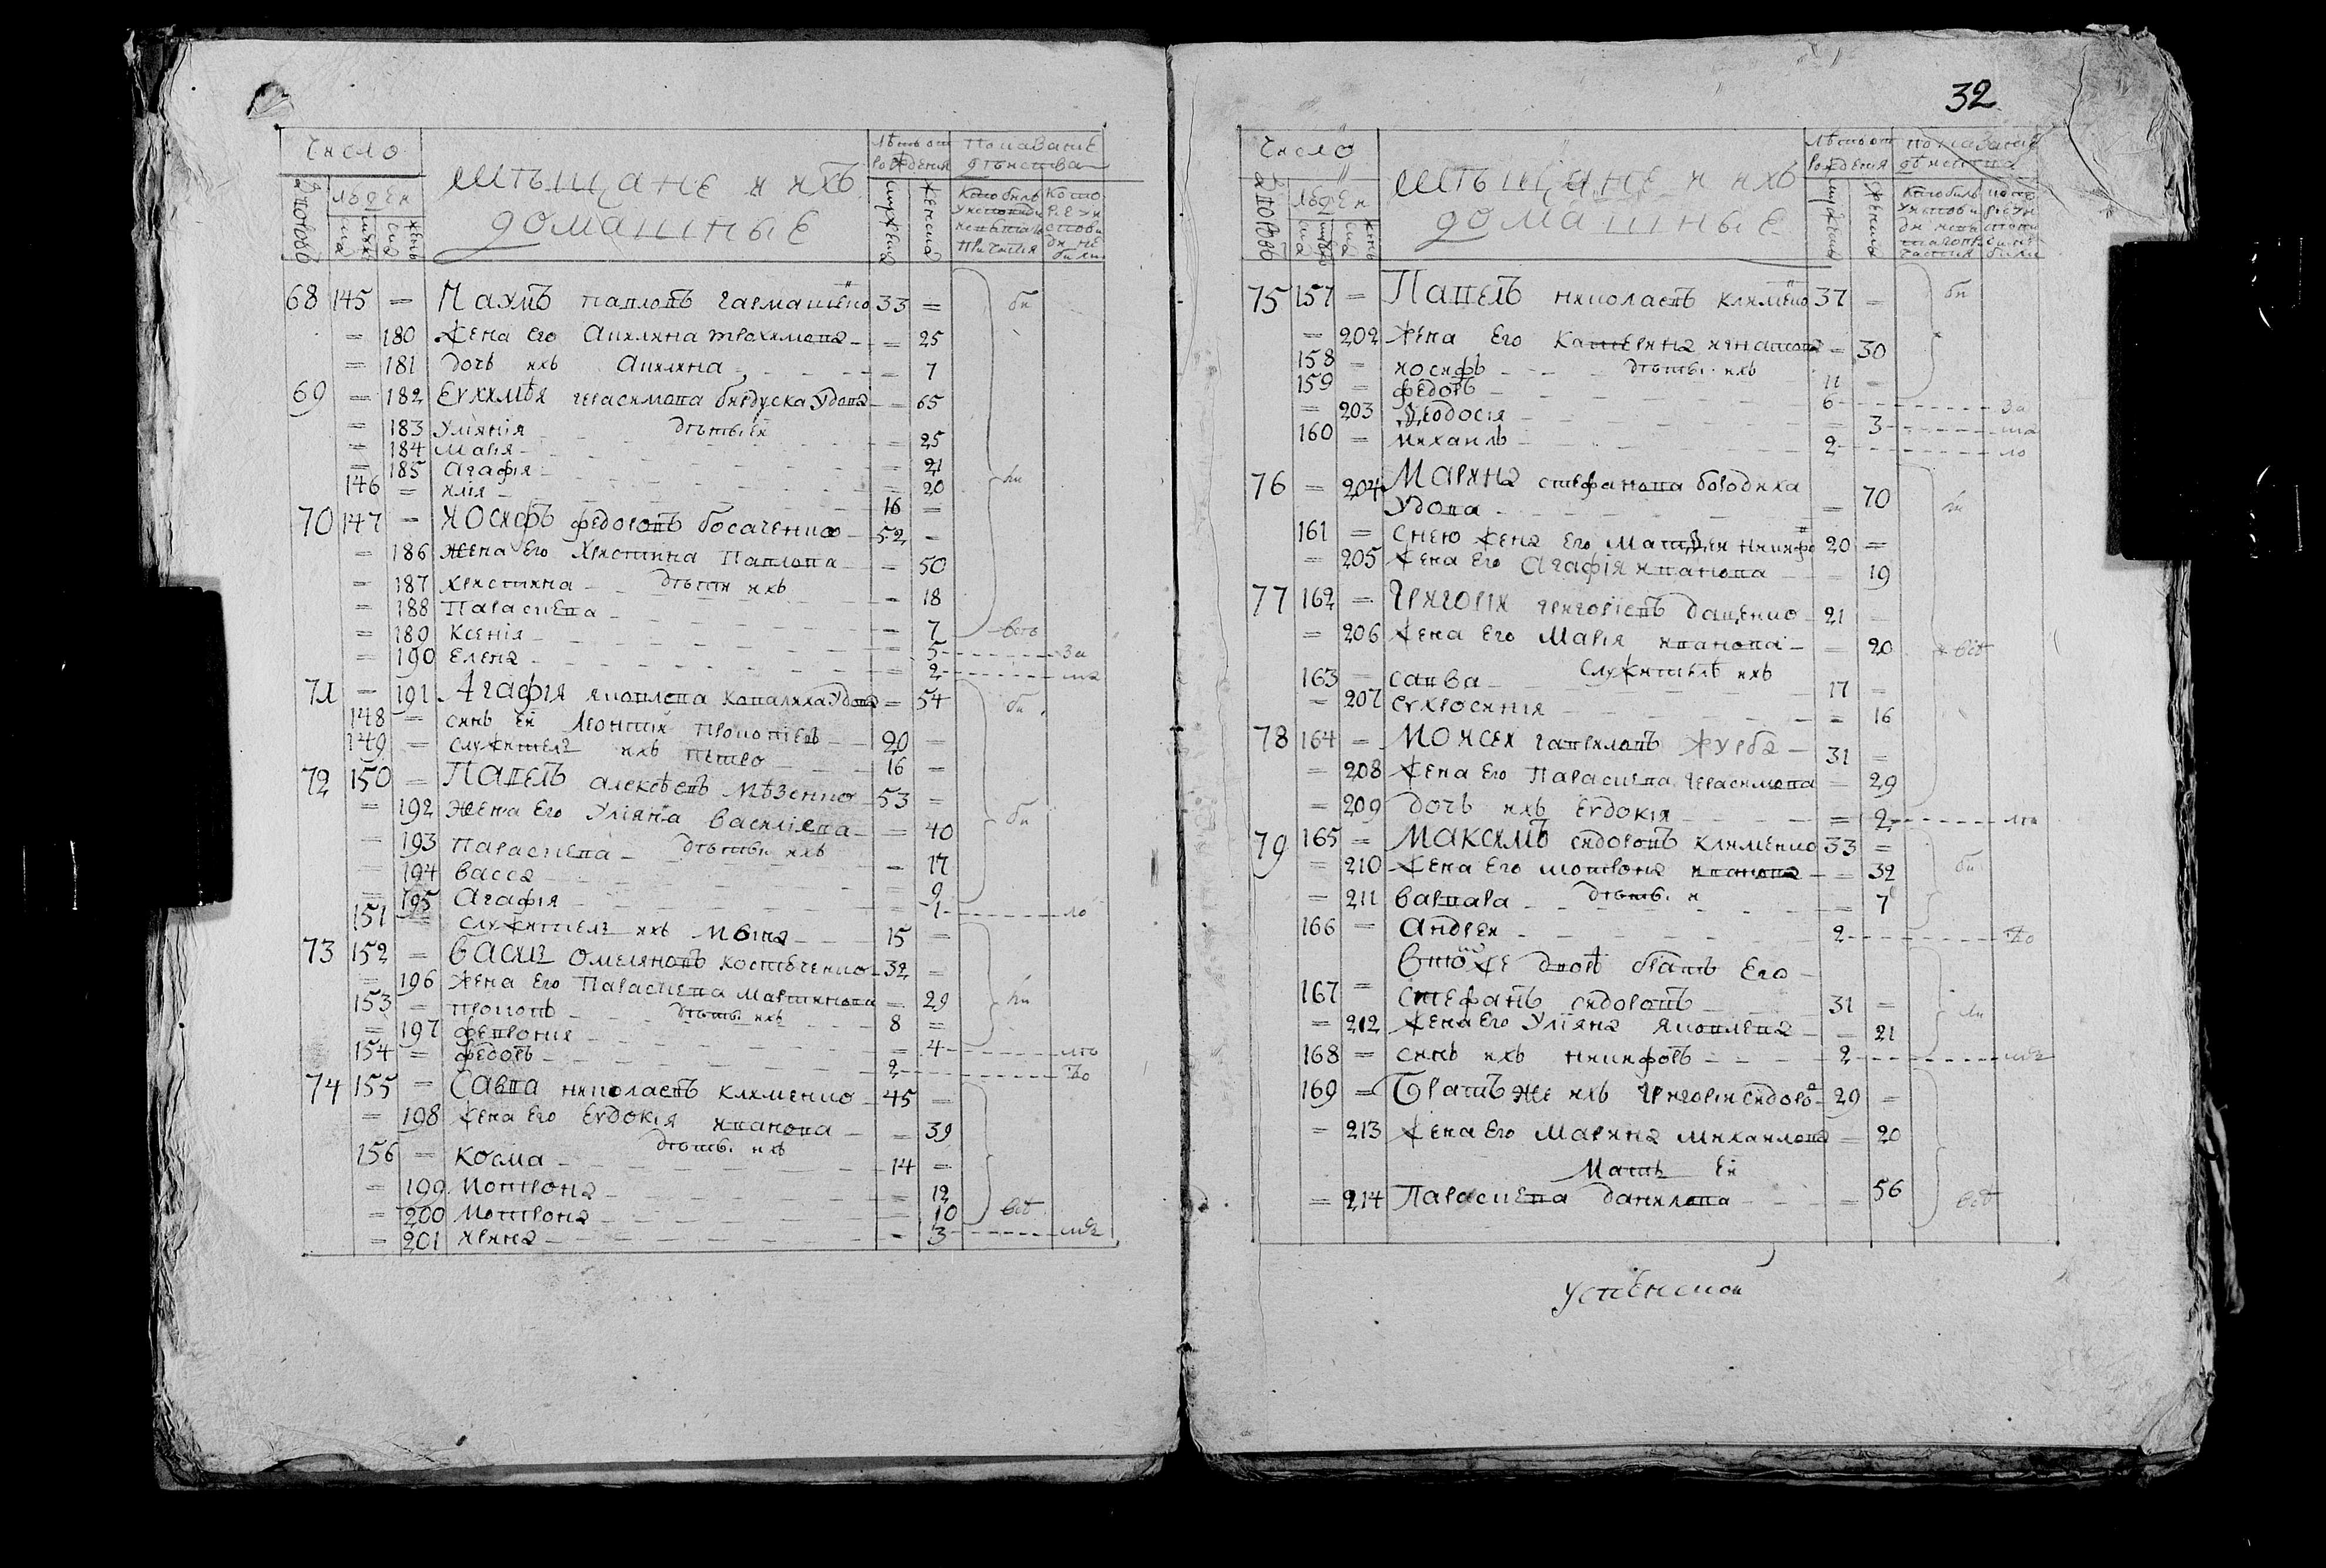 Число
Мѣщане и ихъ
домашные
Лѣтъ от
рождения
Показание
дѣйства
дворовъ
людей
мужеска
женска
68 145 = Пахомъ павловъ гармашенко 33 =
= 180 Жена его Акилина трохимова = 25
= 181 дочь ихъ Акилина = 7
69 = 182 Еухимѣя герасимова бирдуска удова = 65
= 183 Улиянія дѣти ея = 25
= 184 Мария = 21
= 185 Агафія = 20
146 = илія 16 =
70 147 = Иосифъ федоровъ босаченко 52 =
= 186 Жена его Христина Павлова = 50
= 187 христина дѣти ихъ = 18
= 188 Параскева = 7
= 189 Ксенія = 5
= 190 Елена = 2
71 = 191 Агафія яковлева ковалиха удова = 54
148 = синъ ей Леонтий прокопіевъ 20 =
149 = служитель ихъ петро 16 =
72 150 = Павелъ алексѣевъ мѣзенко 53 =
= 192 Жена его Уліяна василіева = 40
= 193 Параскева дѣти ихъ = 17
= 194 васса = 9
= 195 Агафія = 1
151 = служитель ихъ 15 =
73 152 = Василь омеляновъ костюченко 32 =
= 196 Жена его Параскева мартинова = 29
153 = прокопъ дѣти ихъ 8 =
= 197 феврония = 4
154 = федоръ 2
74 155 = Савва николаевъ клименко 45 =
= 198 Жена его Евдокія иванова = 39
156 = косма дѣти ихъ 14 =
= 199 мотрона = 12
= 200 мотрона = 10
= 201 ирина = 3
32
Число
Мѣщане и ихъ
домашные
Лѣтъ от
рождения
показание
дѣйства
дворовъ
людей
мужеска
женска
75 157 = Павелъ николаевъ клименко 37 =
= 202 Жена его катерина игнатова = 30
158 = иосифъ дѣти ихъ 11 =
159 = федоръ 6
= 203 Феодосія = 3
160 = михаилъ 2
76 = 204 Марина стефанова бородиха
удова = 70
161 = снею жена его матфей никифо 20 =
= 205 Жена его Агафія иванова = 19
77 162 = Григорій григоріевъ даценко 21 =
= 206 Жена его Марія иванова = 20
служителѣ ихъ
163 = савва 17 =
= 207 еухросиния = 16
78 164 = Моисей гавриловъ журба 31 =
= 208 Жена его Параскева герасимова = 29
= 209 дочь ихъ евдокія = 2
79 165 = Максимъ сидоровъ клименко 33 =
= 210 Жена его мотрона иванова = 32
= 211 варвара дѣти и = 7
166 = Андрей 2
Втомже дворѣ братъ его
167 = Стефанъ сидоровъ 31 =
= 212 Жена его Уліяна яковлева = 21
168 = синъ ихъ никифоръ 2
169 = Братъ же ихъ григорій сидоро 29 =
= 213 Жена его Марина михайлова = 20
Мать ей
= 214 Параскева данилова = 56
успенской